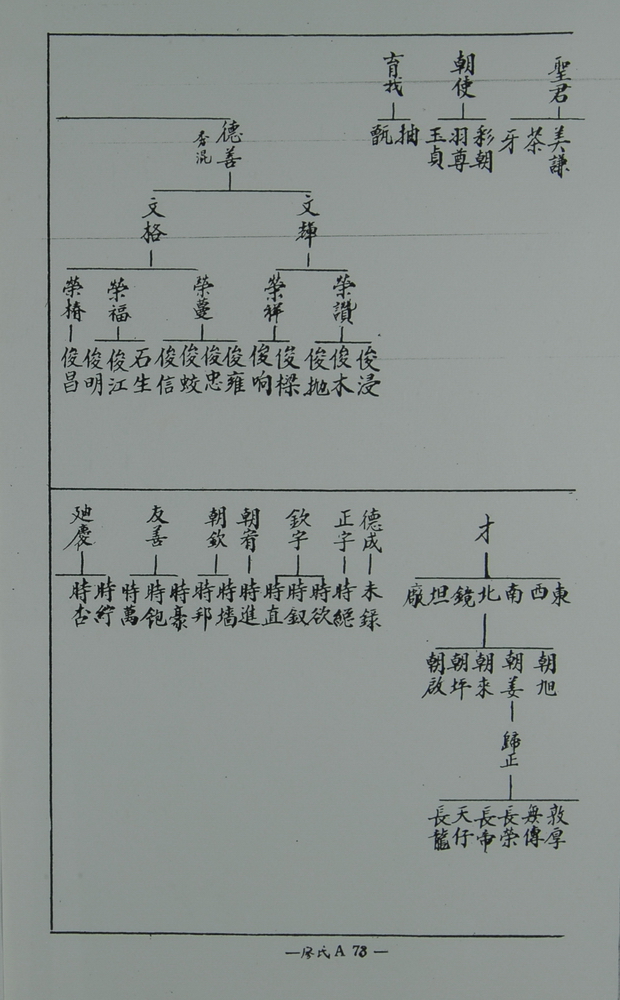 聖君
美謙
茶
牙
朝使
彩朝
羽尊
玉貞
育找
抽
甑
德善
杏混
文輝
文格
榮讚
榮祥
榮蔓
榮福
榮椿
俊浸
俊木
俊拋
俊樑
俊响
俊雍
俊忠
俊蚊
俊信
石生
俊江
俊明
俊昌
才
東
西
南
北
鏡
坦
廠
朝旭
朝姜
朝來
朝坪
朝啟
歸正
敦厚
無傳
長榮
長帝
天仔
長龍
德成
未錄
正字
時絕
欽字
時欲
時釵
時直
朝宥
時進
朝欽
時墻
時邦
友善
時豪
時鉋
時萬
廸慶
時紵
時杏
—廖氏 A 73—